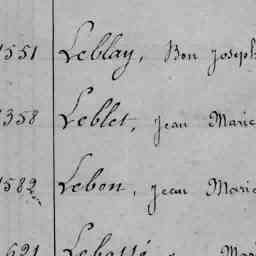 1551 Leblay, Bon Joseph
1358 Leblet, Jean Marie
1582 Lebon, Jean Marie
621 Lebossé